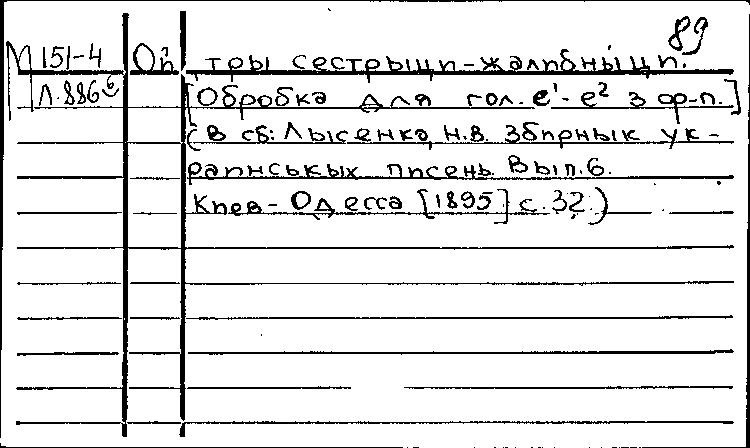 89
М 151-4 Ой, тры сестрыци-жалибныци.
Л.886е [Обробка для гол. e¹-e² з ф-п.]
(в сб: Лысенко, Н.В. Збирнык ук-
раинськых писень. Вып.6.
Киев-Одесса [1895] с.32.)